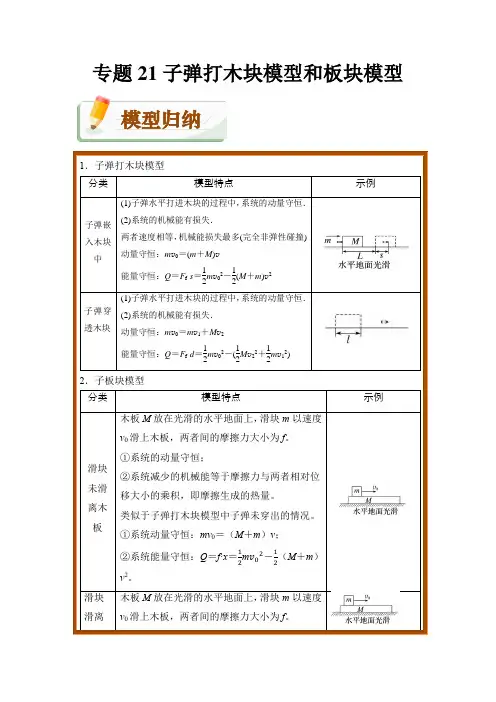 专题21子弹打木块模型和板块模型
模型归纳
1．子弹打木块模型
分类
模型特点
示例
子弹嵌
入木块
中
(1)子弹水平打进木块的过程中，系统的动量守恒．
(2)系统的机械能有损失．
两者速度相等，机械能损失最多(完全非弹性碰撞)
动量守恒：mv₀＝(m＋M)v
能量守恒：Q＝F_f·s＝1/2mv₀²－1/2(M＋m)v²
m
M
L
s
水平地面光滑
子弹穿
透木块
(1)子弹水平打进木块的过程中，系统的动量守恒．
(2)系统的机械能有损失．
动量守恒：mv₀＝mv₁＋Mv₂
能量守恒：Q＝F_f·d＝1/2mv₀²－(1/2Mv₂²＋1/2mv₁²)
l
2．子板块模型
分类
模型特点
示例
滑块
未滑
离木
板
木板M放在光滑的水平地面上，滑块m以速度
v₀滑上木板，两者间的摩擦力大小为f。
①系统的动量守恒；
②系统减少的机械能等于摩擦力与两者相对位
移大小的乘积，即摩擦生成的热量。
类似于子弹打木块模型中子弹未穿出的情况。
①系统动量守恒：mv₀＝（M＋m）v；
②系统能量守恒：Q＝f·x＝1/2mv₀²－1/2（M＋m）
v²。
m
v₀
M
水平地面光滑
滑块
滑离
木板M放在光滑的水平地面上，滑块m以速度
v₀滑上木板，两者间的摩擦力大小为f。
m
v₀
M
水平地面光滑